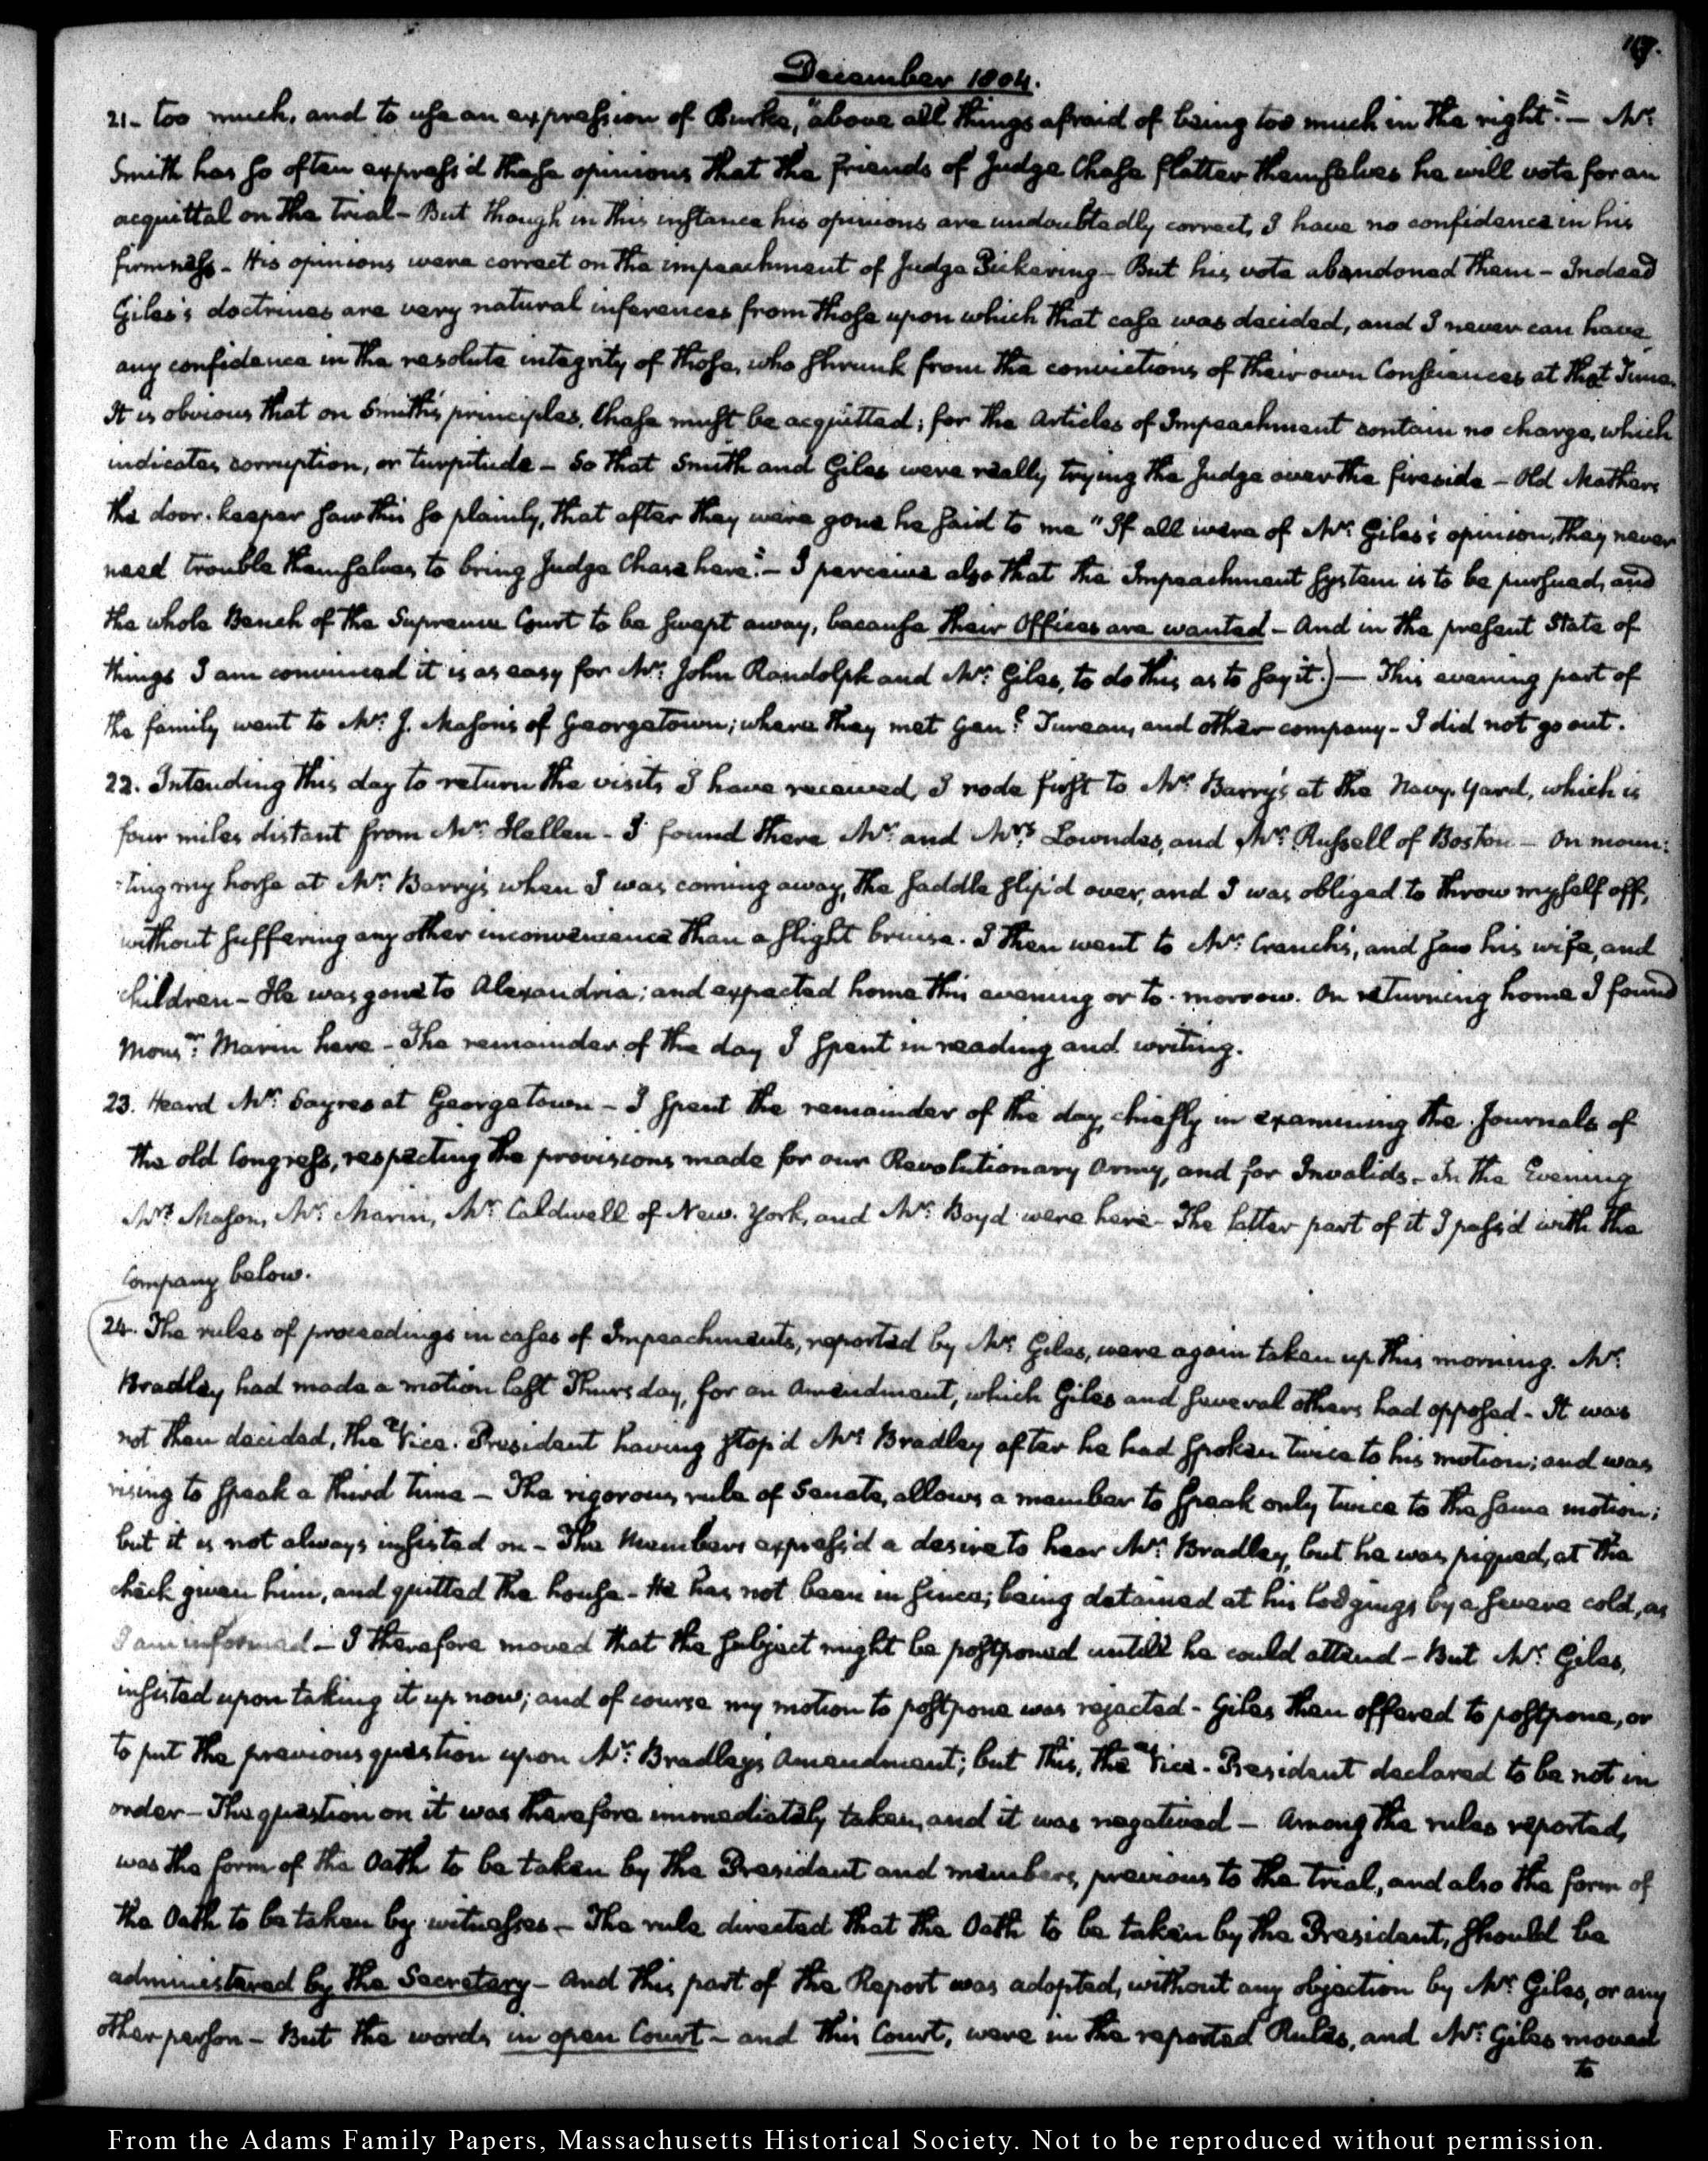 117.
December 1804.
21- too much, and to use an expression of Burke, "above all things afraid of being too much in the right."- Mr.
Smith has so often express'd these opinions that the friends of Judge Chase flatter themselves he will vote for an
acquittal on the trial- But though in this instance his opinions are undoubtedly correct, I have no confidence in his
firmness- His opinions were correct on the impeachment of Judge Pickering- But his vote abandoned them- Indeed
Giles's doctrines are very natural inferences from those upon which that case was decided, and I never can have
any confidence in the resolute integrity of those, who shrunk from the convictions of their own Consciences at that Time.
It is obvious that on Smith's principles, Chase must be acquitted; for the Articles of Impeachment contain no charge, which
indicates corruption, or turpitude- So that Smith and Giles were really trying the Judge over the fireside- Old Mathers
the door-keeper saw this so plainly, that after they were gone he said to me "If all were of Mr. Giles's opinion, they never
need trouble themselves to bring Judge Chase here."- I perceive also that the Impeachment system is to be pursued, and
the whole Bench of the Supreme Court to be swept away, because their Offices are wanted- And in the present State of
things I am convinced it is as easy for Mr. John Randolph and Mr. Giles, to do this as to say it.)- This evening part of
the family went to Mr. J. Mason's of Georgetown; where they met Genl. Tureau, and other company- I did not go out.
22. Intending this day to return the visits I have received, I rode first to Mr. Barry's at the Navy-Yard, which is
four miles distant from Mr. Hellen- I found there Mr. and Mrs. Lowndes, and Mr. Russell of Boston- On moun:
:ting my horse at Mr. Barry's when I was coming away, the saddle slip'd over, and I was obliged to throw myself off,
without suffering any other inconvenience than a slight bruise. I then went to Mr. Cranch's, and saw his wife, and
children- He was gone to Alexandria; and expected home this evening or to-morrow. On returning home I found
Monsr. Marin here- The remainder of the day I spent in reading and writing.
23. Heard Mr. Sayres at Georgetown- I spent the remainder of the day, chiefly in examining the Journals of
the old Congress, respecting the provisions made for our Revolutionary Army, and for Invalids- In the Evening
Mr. Mason, Mr. Marin, Mr. Caldwell of New-York, and Mr. Boyd were here- The latter part of it I pass'd with the
company below.
(24. The rules of proceedings in cases of Impeachments, reported by Mr. Giles, were again taken up this morning. Mr.
Bradley had made a motion last Thursday, for an Amendment, which Giles and several others had opposed- It was
not then decided, the Vice-President having stop'd Mr. Bradley after he had spoken twice to his motion; and was
rising to speak a third time- The rigorous rule of Senate, allows a member to speak only twice to the same motion;
but it is not always insisted on- The Members express'd a desire to hear Mr. Bradley, but he was piqued, at the
check given him, and quitted the house- He has not been in since; being detained at his lodgings by a severe cold, as
I am informed- I therefore moved that the subject might be postponed untill he could attend- But Mr. Giles,
insisted upon taking it up now; and of course my motion to postpone was rejected- Giles then offered to postpone, or
to put the previous question upon Mr. Bradley's Amendment; but this, the Vice-President declared to be not in
order- The question on it was therefore immediately taken, and it was negatived- Among the rules reported,
was the form of the Oath to be taken by the President and members, previous to the trial, and also the form of
the Oath to be taken by witnesses- The rule directed that the Oath to be taken by the President, should be
administered by the Secretary- And this part of the Report was adopted, without any objection by Mr. Giles, or any
other person- But the words in open Court- and this Court, were in the reported Rules, and Mr. Giles moved
to
From the Adams Family Papers, Massachusetts Historical Society. Not to be reproduced without permission.